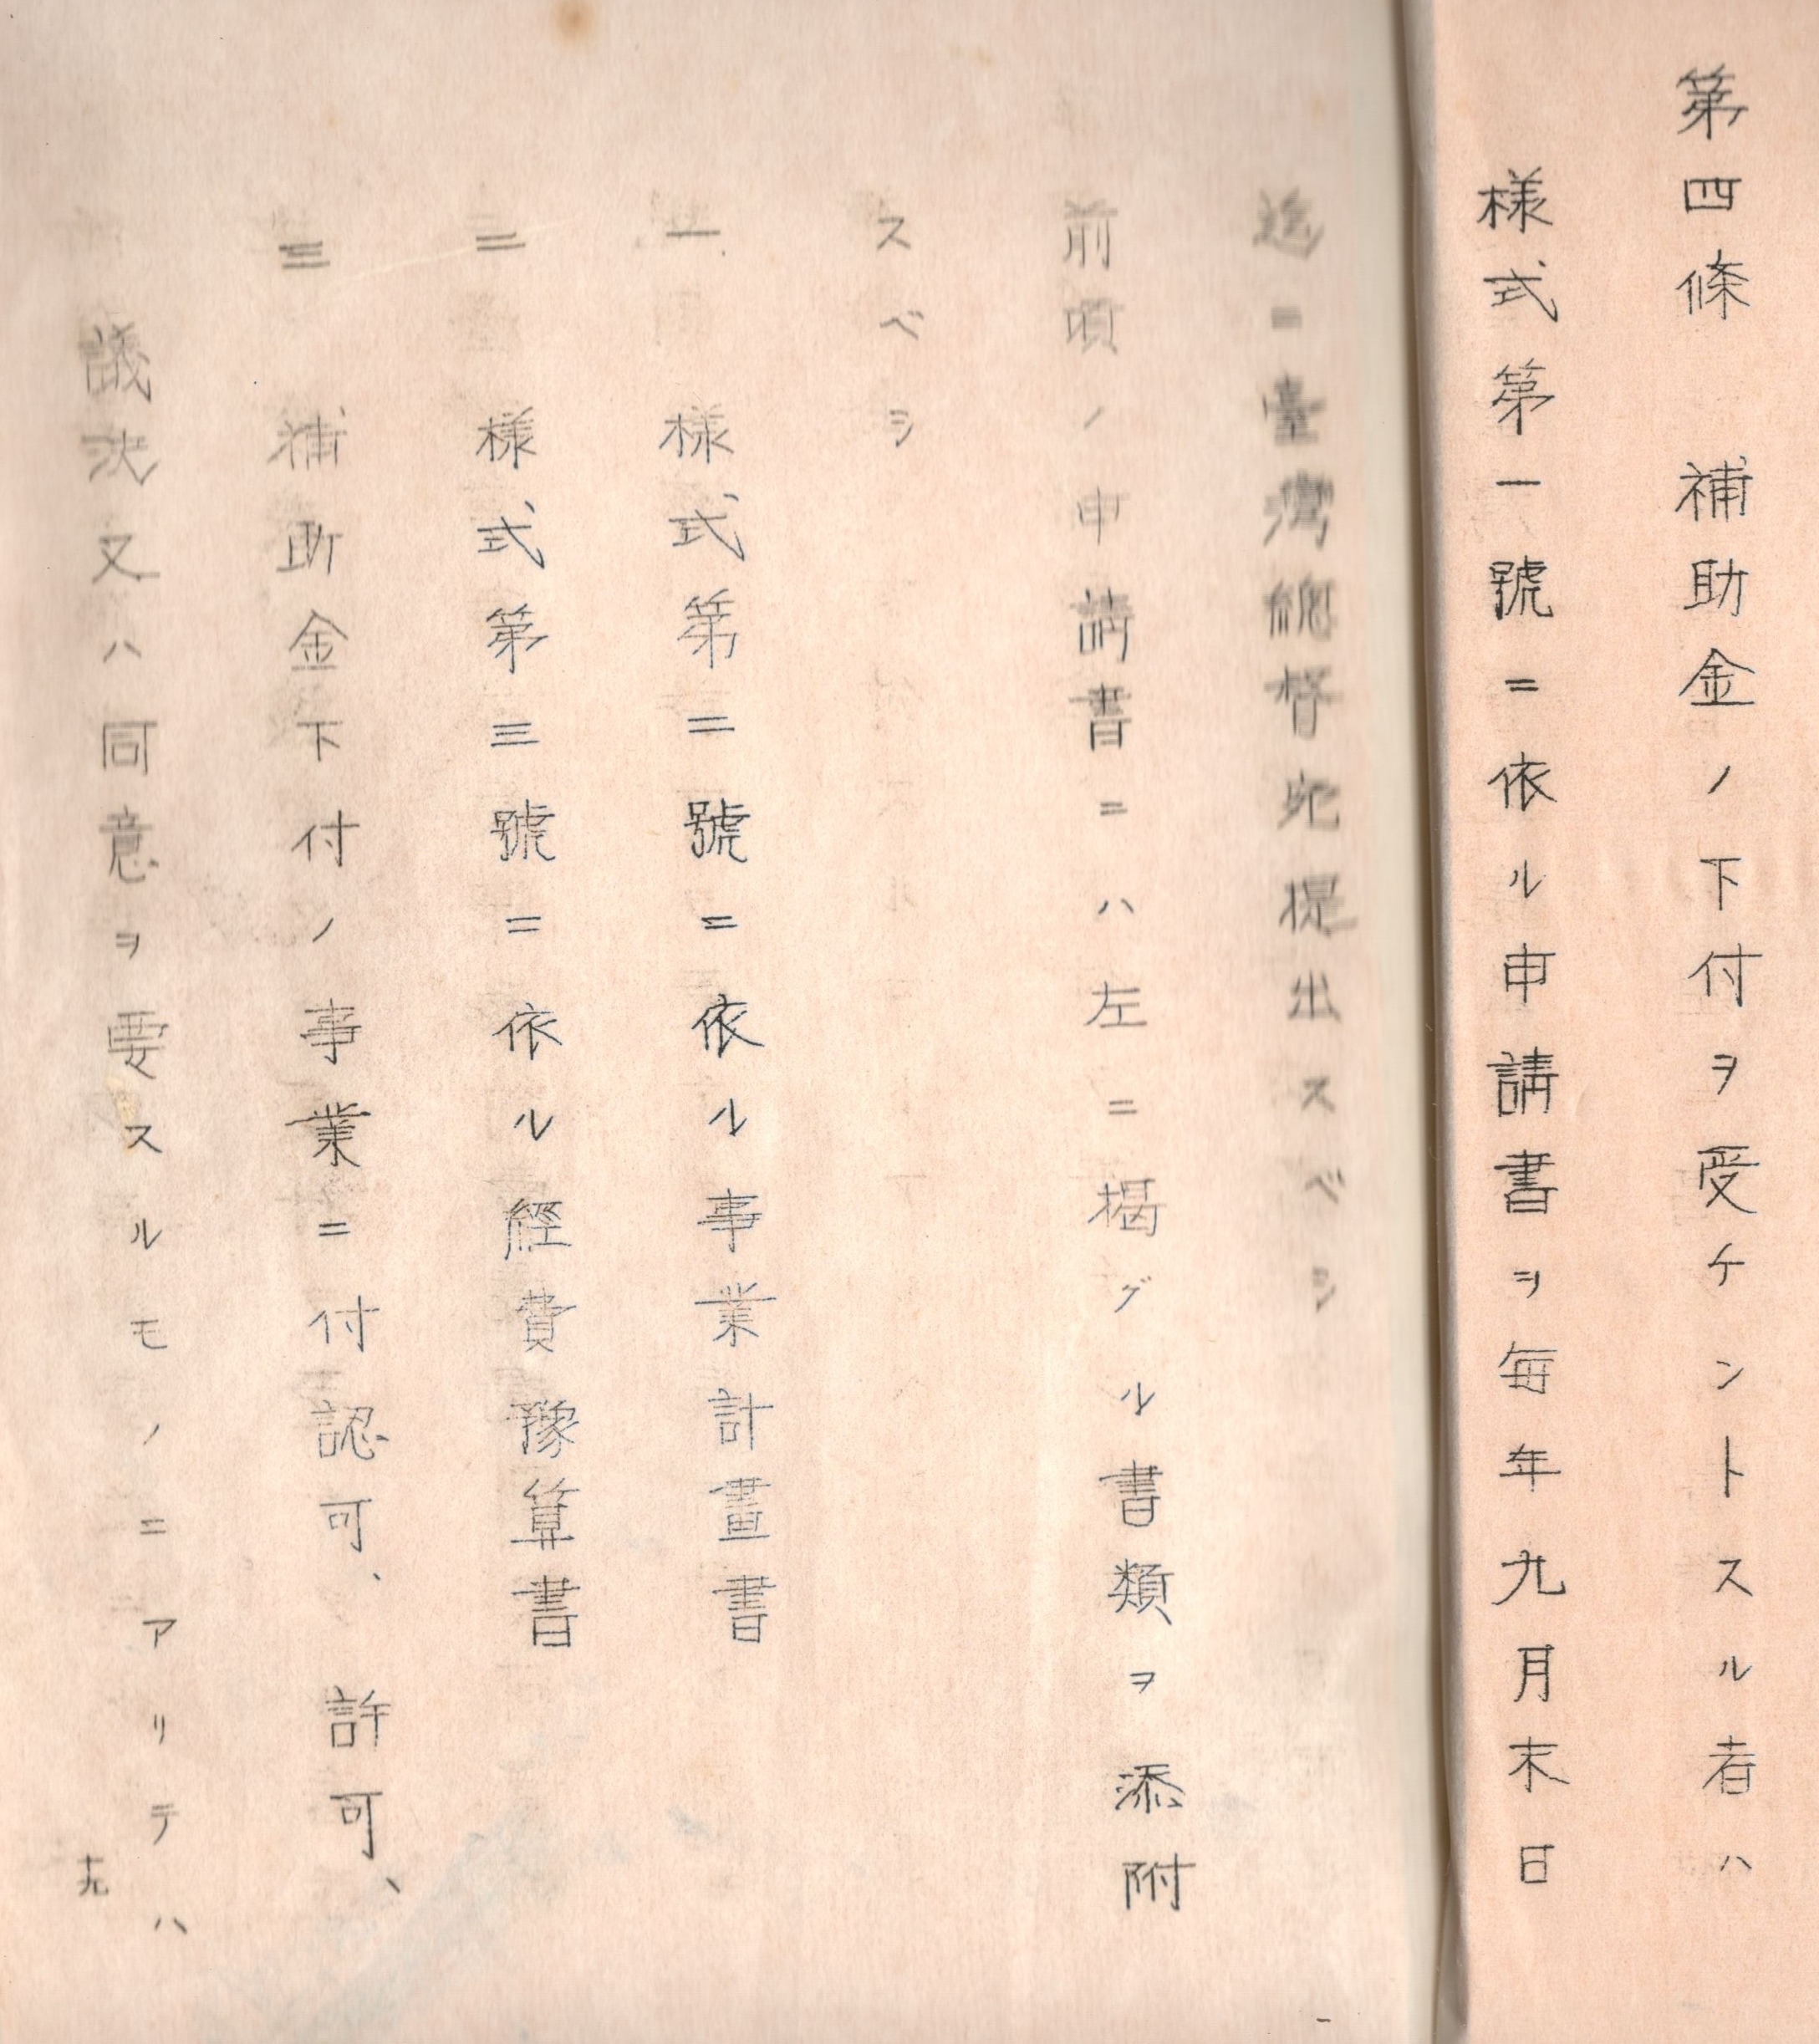 第四條　補助金ノ下付ヲ受ケントスル者ハ
樣式第一號ニ依ル申請書ヲ每年九月末日
迄ニ臺灣總督宛提出スベシ
前項ノ申請書ニハ左ニ揭グル書類ヲ添附
スベシ
一　樣式第二號ニ依ル事業計畫書
二　樣式第三號ニ依ル經費豫算書
三　補助金下付ノ事業ニ付認可、許可、
議決又ハ同意ヲ要スルモノニアリテハ
十九